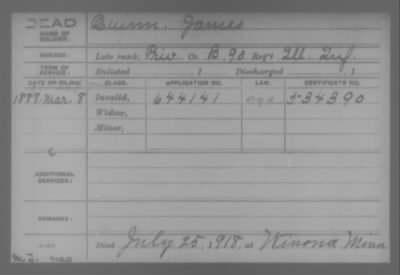 DEAD
NAME OF SOLDIER: Quinn, James
SERVICE: Late rank, Priv Co. B, 90 Reg't Ill. Inf.
TERM OF SERVICE: Enlisted , 1 Discharged , 1
DATE OF FILING. CLASS. APPLICATION NO. LAW. CERTIFICATE NO.
1888 Mar. 8 Invalid, 644141 534390
Widow,
Minor,
ADDITIONAL SERVICES:
REMARKS:
Died July 25, 1918, at Winona Minn